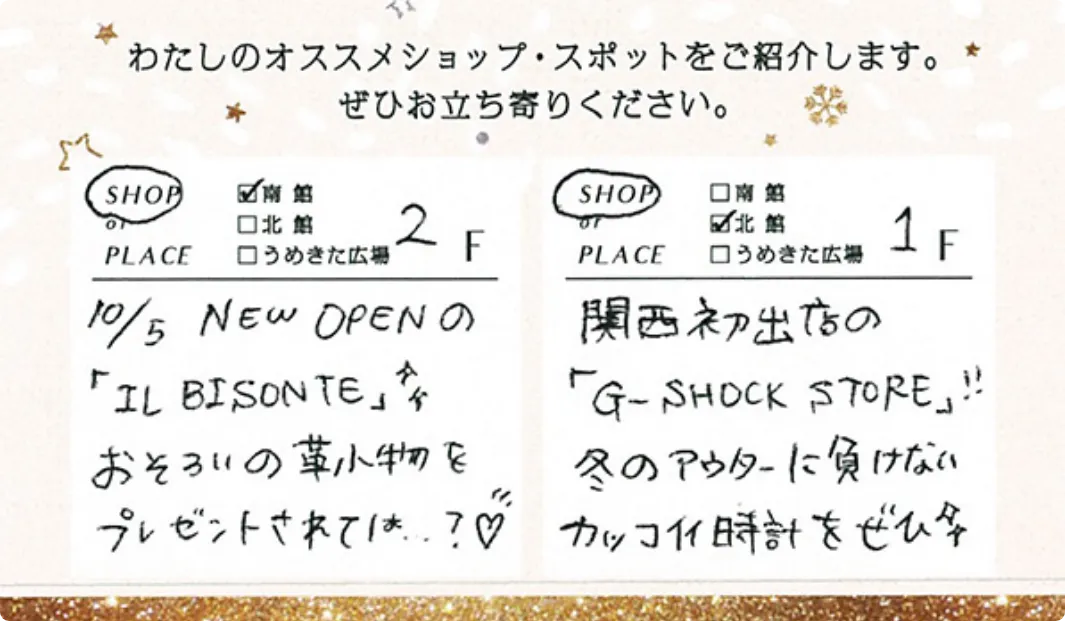 わたしのオススメショップ・スポットをご紹介します。
ぜひお立ち寄りください。
SHOP
or
PLACE
☑南館
☐北館
☐うめきた広場
2 F
10/5 NEW OPENの
「IL BISONTE」
おそろいの革小物を
プレゼントされては…?♡
SHOP
or
PLACE
☐南館
☑北館
☐うめきた広場
1 F
関西初出店の
「G-SHOCK STORE」!!
冬のアウターに負けない
カッコイイ時計をぜひ